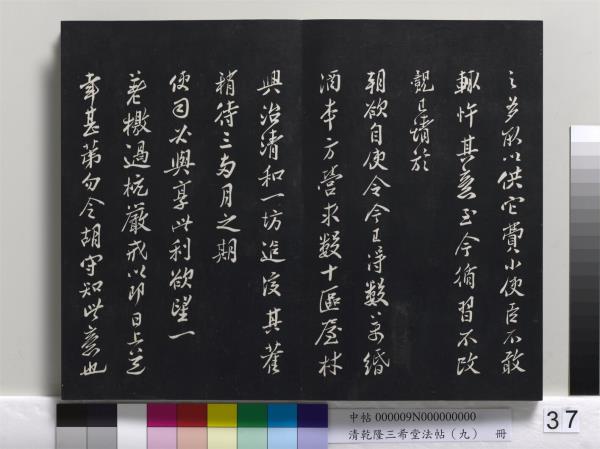 之多取以供它費小使臣不敢
輒忤其意至今循習不改
親已請於
朝欲自使令今已得數万緡
酒本方營求數十區屋材
興治清和一坊迨度其舊
稍待三两月之期
使司必興享此利欲望一
差檄過杭嚴戒以即日上道
幸甚第勿令胡守知此意也
中帖 000009N000000000
清乾隆三希堂法帖（九） 冊
37